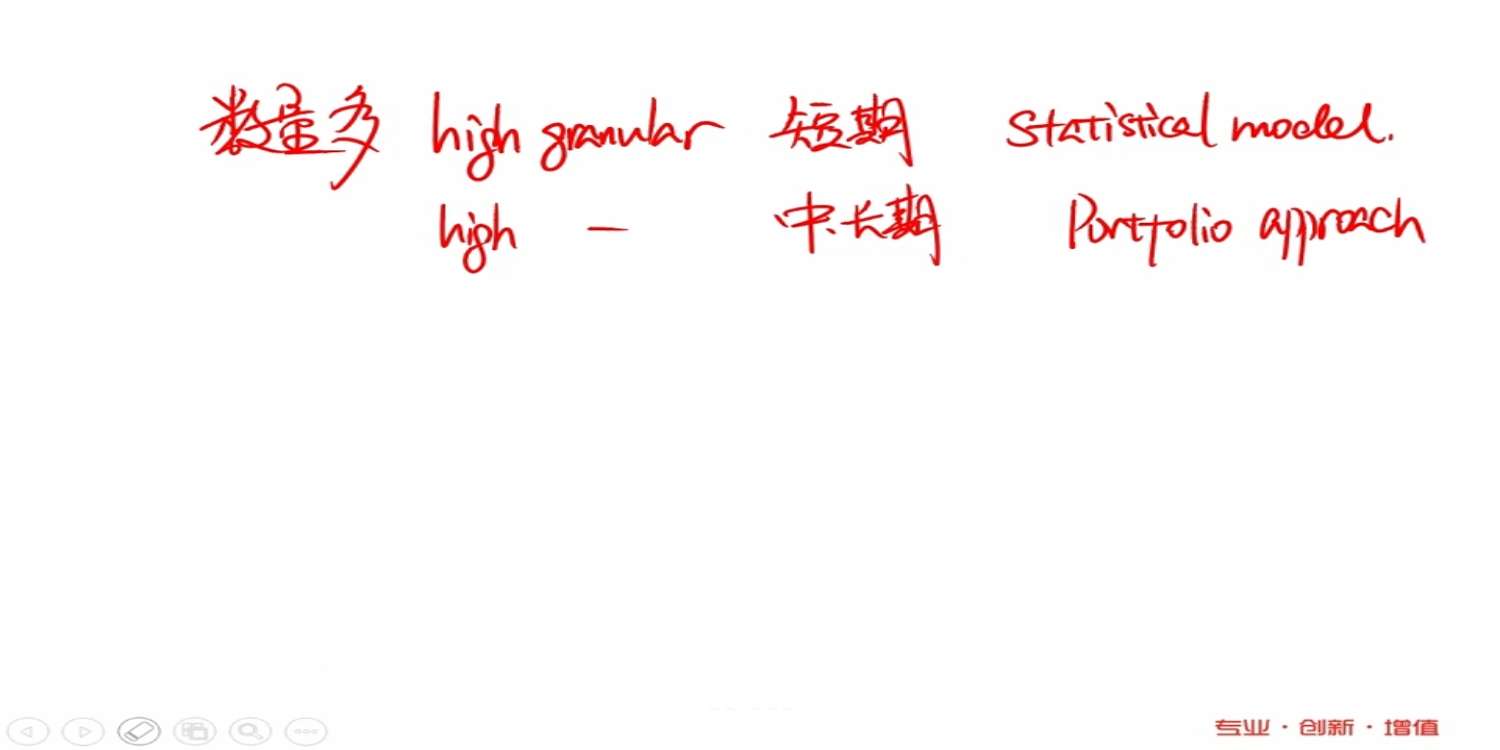 数量多 high granular 短期 Statistical model.
high — 中.长期 Portfolio approach
专业·创新·增值